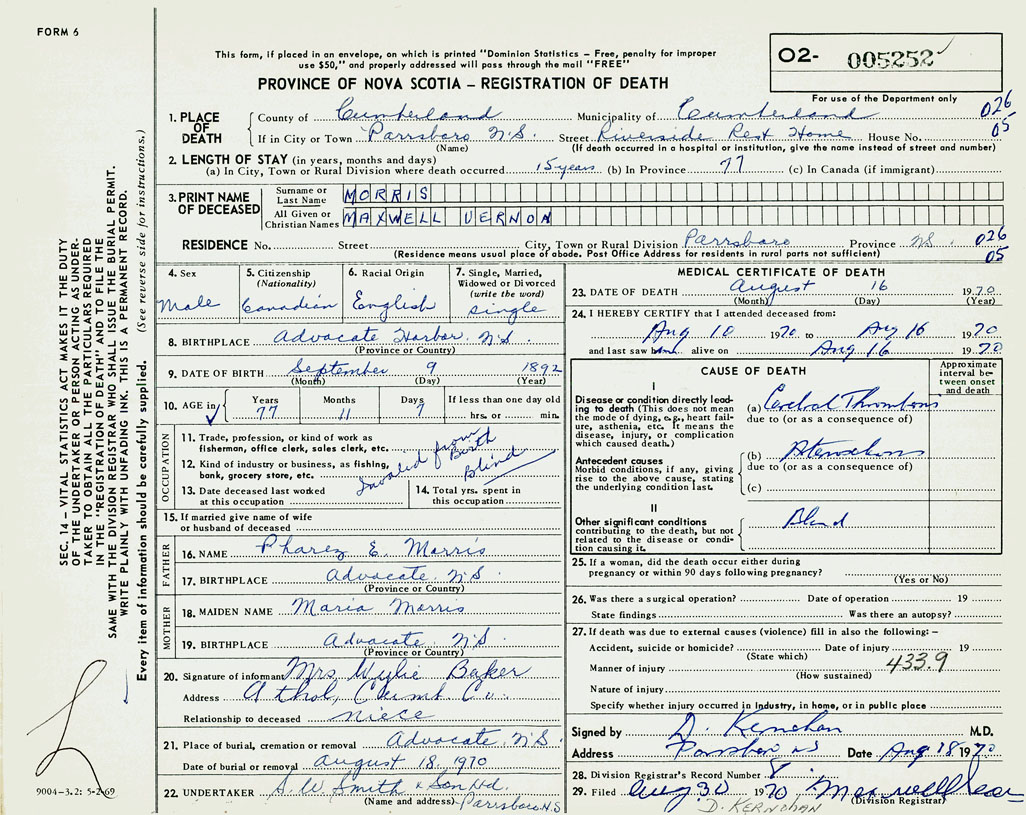 FORM 6
This form, if placed in an envelope, on which is printed "Dominion Statistics – Free, penalty for improper
use $50," and properly addressed will pass through the mail "FREE"
O2- 005252
PROVINCE OF NOVA SCOTIA – REGISTRATION OF DEATH
For use of the Department only
1. PLACE OF DEATH
County of Cumberland Municipality of Cumberland 026
If in City or Town Parrsboro N.S. Street Riverside Rest Home House No. 05
(Name) (If death occurred in a hospital or institution, give the name instead of street and number)
2. LENGTH OF STAY (in years, months and days)
(a) In City, Town or Rural Division where death occurred 15 years (b) In Province 77 (c) In Canada (if immigrant)
3. PRINT NAME OF DECEASED
Surname or Last Name MORRIS
All Given or Christian Names MAXWELL VERNON
RESIDENCE No. Street City, Town or Rural Division Parrsboro Province N.S. 026
(Residence means usual place of abode. Post Office Address for residents in rural parts not sufficient) 05
4. Sex Male
5. Citizenship (Nationality) Canadian
6. Racial Origin English
7. Single, Married, Widowed or Divorced (write the word) Single
8. BIRTHPLACE Advocate Harbor N.S.
(Province or Country)
9. DATE OF BIRTH September 9 1892
(Month) (Day) (Year)
10. AGE in Years 77 Months 11 Days 7 If less than one day old hrs. or min.
OCCUPATION
11. Trade, profession, or kind of work as
fisherman, office clerk, sales clerk, etc.
12. Kind of industry or business, as fishing,
bank, grocery store, etc.
Invalid from Birth
Blind
13. Date deceased last worked
at this occupation
14. Total yrs. spent in
this occupation
15. If married give name of wife
or husband of deceased
FATHER
16. NAME Pharez E. Morris
17. BIRTHPLACE Advocate N.S.
(Province or Country)
MOTHER
18. MAIDEN NAME Maria Morris
19. BIRTHPLACE Advocate N.S.
(Province or Country)
20. Signature of informant Mrs Wylie Baker
Address Athol, Cumb. Co.
Relationship to deceased niece
21. Place of burial, cremation or removal Advocate N.S.
Date of burial or removal August 18, 1970
22. UNDERTAKER S. W. Smith & Son Ltd.
(Name and address) Parrsboro N.S
MEDICAL CERTIFICATE OF DEATH
23. DATE OF DEATH August 16 1970
(Month) (Day) (Year)
24. I HEREBY CERTIFY that I attended deceased from:
Aug 10 1970 to Aug 16 1970
and last saw him alive on Aug 16 1970
CAUSE OF DEATH
Approximate interval between onset and death
I
Disease or condition directly leading to death (This does not mean the mode of dying, e.g., heart failure, asthenia, etc. It means the disease, injury, or complication which caused death.)
(a) Cerebral Thrombosis
due to (or as a consequence of)
Antecedent causes
Morbid conditions, if any, giving rise to the above cause, stating the underlying condition last.
(b)
due to (or as a consequence of)
(c)
II
Other significant conditions contributing to the death, but not related to the disease or condition causing it.
Blind
25. If a woman, did the death occur either during
pregnancy or within 90 days following pregnancy?
(Yes or No)
26. Was there a surgical operation? Date of operation 19
State findings Was there an autopsy?
27. If death was due to external causes (violence) fill in also the following: –
Accident, suicide or homicide? Date of injury 19
(State which)
Manner of injury 433.9
(How sustained)
Nature of injury
Specify whether injury occurred in Industry, in home, or in public place
Signed by D. Kernohan M.D.
Address Parrsboro NS Date Aug 18 1970
28. Division Registrar's Record Number 8
29. Filed Aug 30 1970
(Division Registrar)
D. KERNOHAN
SEC. 14 – VITAL STATISTICS ACT MAKES IT THE DUTY
OF THE UNDERTAKER OR PERSON ACTING AS UNDER-
TAKER TO OBTAIN ALL THE PARTICULARS REQUIRED
IN THE "REGISTRATION OF DEATH" AND TO FILE THE
SAME WITH THE DIVISION REGISTRAR WHO SHALL ISSUE THE BURIAL PERMIT.
WRITE PLAINLY WITH UNFADING INK. THIS IS A PERMANENT RECORD.
Every item of information should be carefully supplied. (See reverse side for instructions.)
9004-3.2: 5-2-69